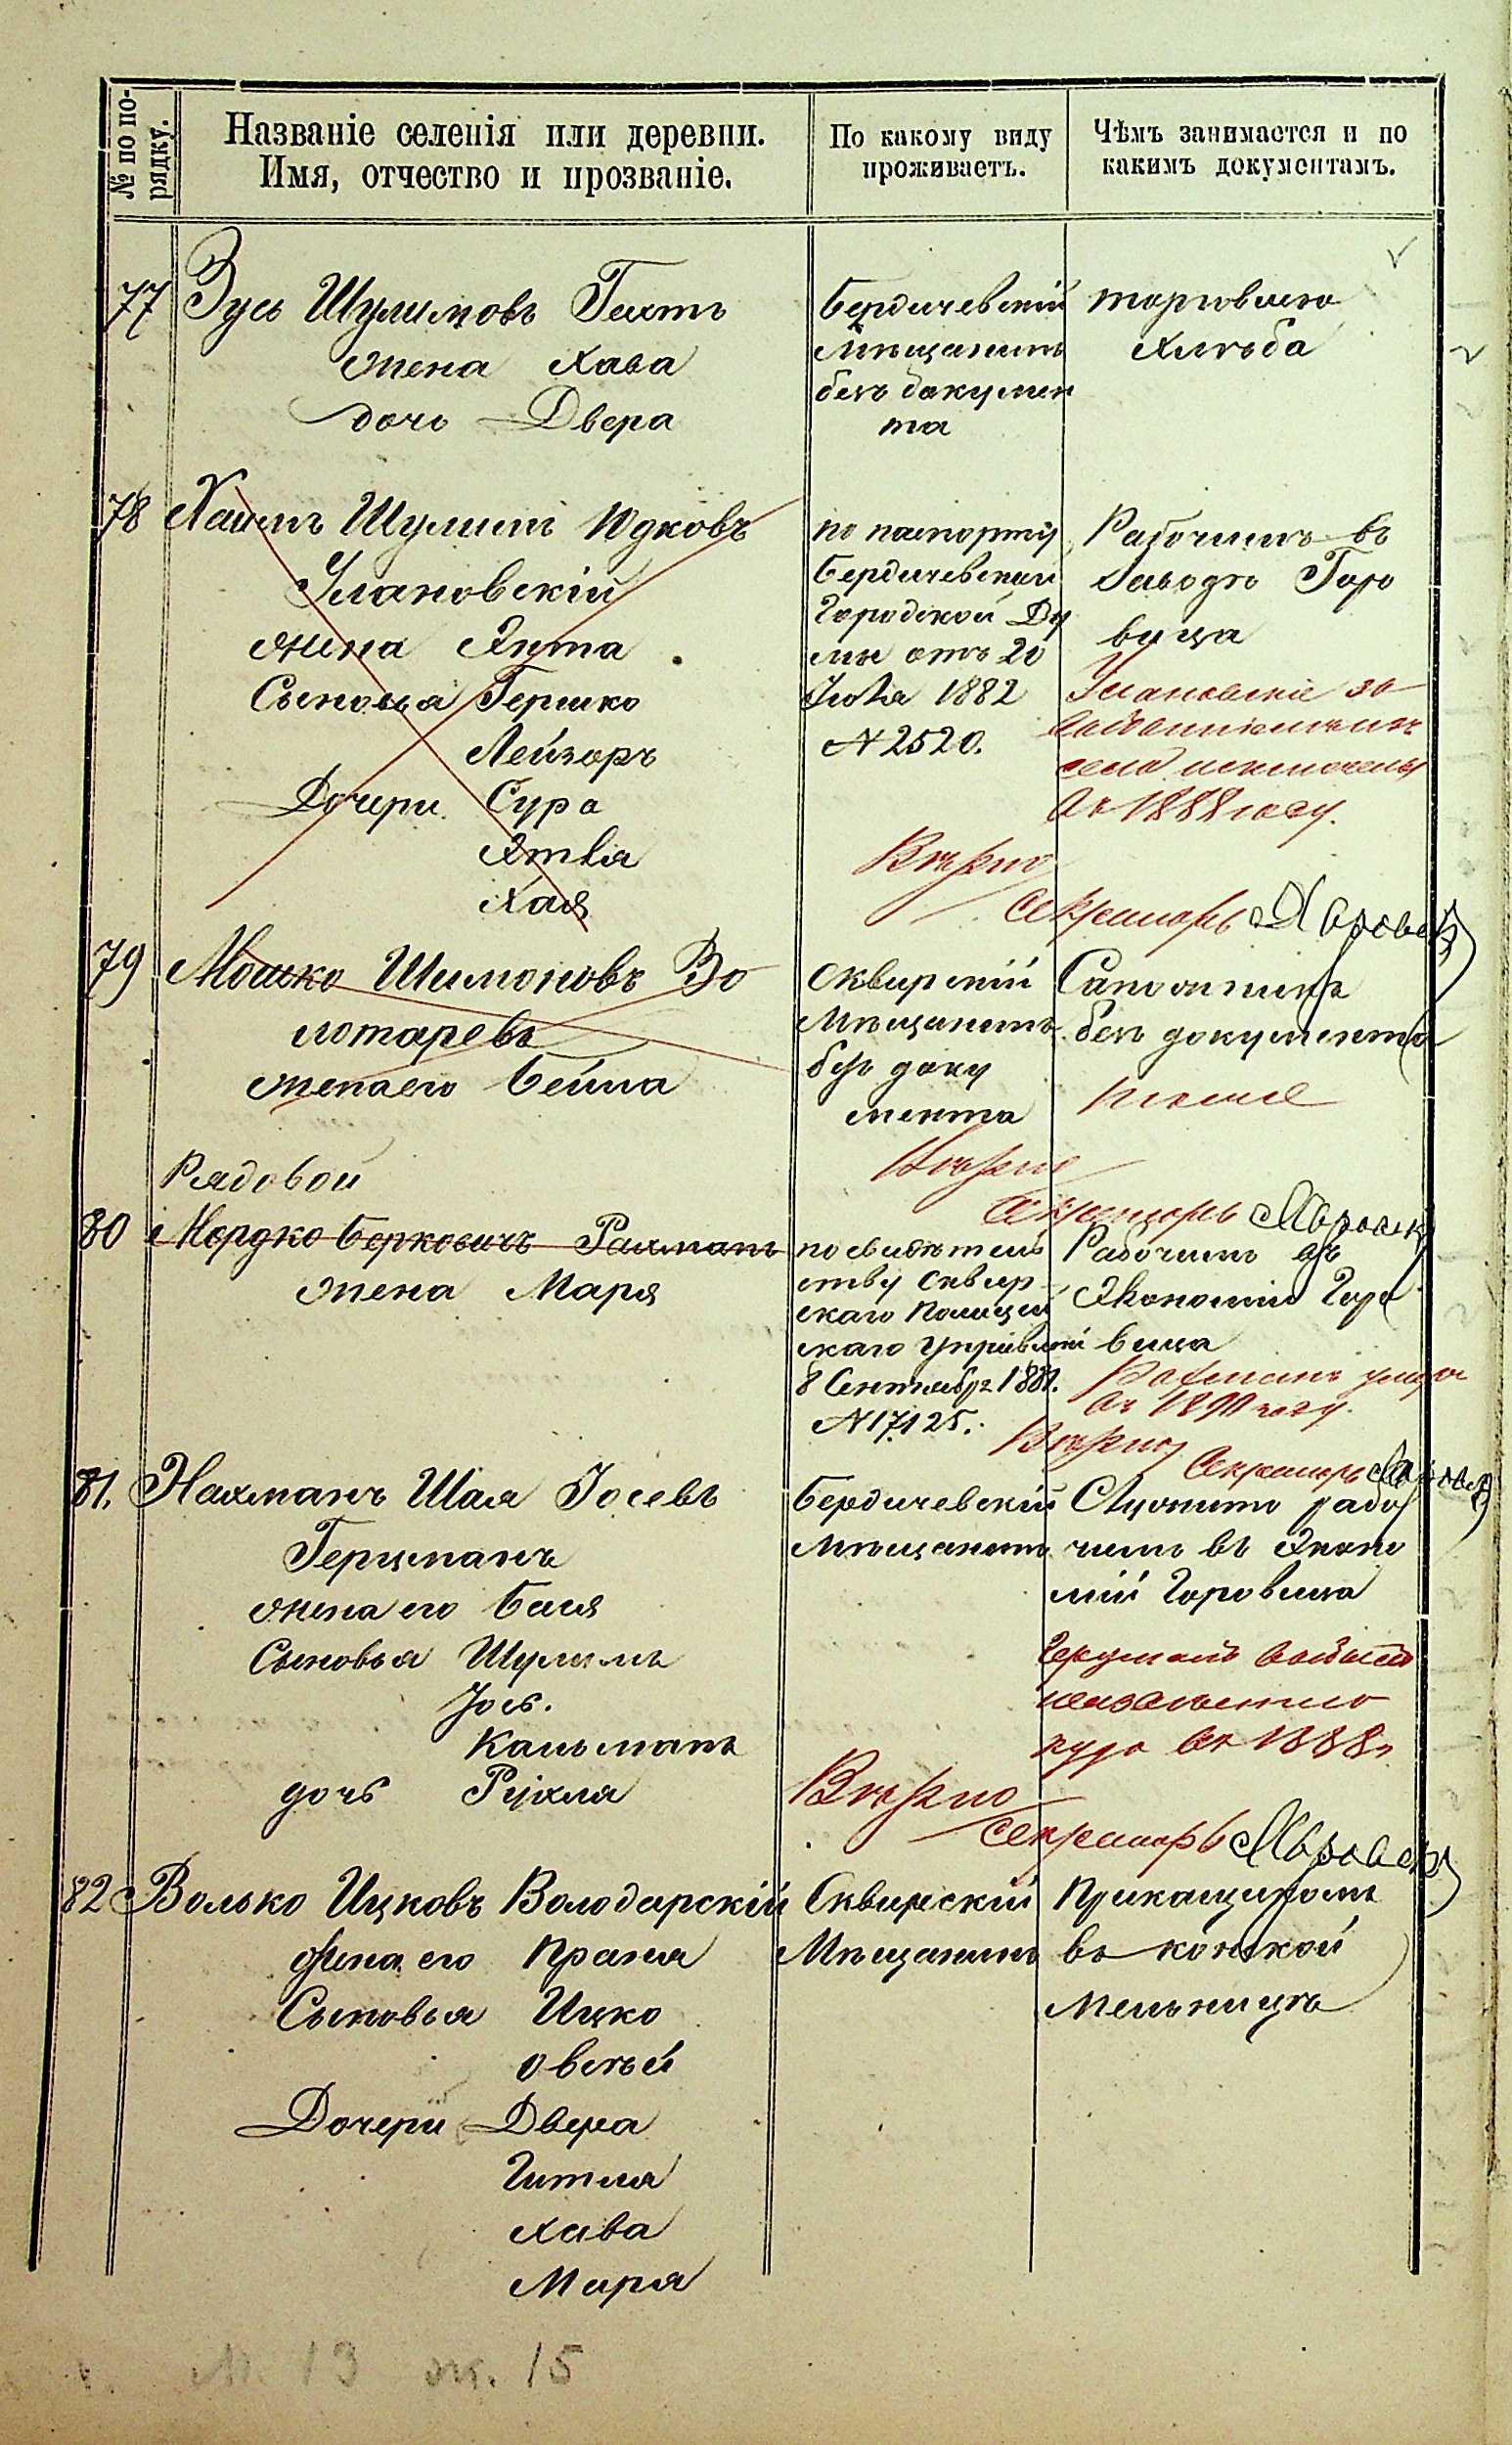 № по по-
рядку.
Названіе селенія или деревни.
Имя, отчество и прозваніе.
По какому виду
проживаетъ.
Чѣмъ занимается и по
какимъ документамъ.
77
Зусь Шулимовъ Гехтъ
жена Хава
дочь Двера
Бердичевскій
Мѣщанинъ
безъ докумен
та
торговлею
хлѣба
78
Хаимъ Шулимъ Юдковъ
Улановскій
жена Янта
Сыновья Гершко
Лейзоръ
Дочери Сура
Хая
по паспорту
Бердичевской
Городской Ду
мы отъ 20
Іюля 1882
№ 2520.
Рабочимъ въ
Заводѣ Горо
вица
Улановскіе за
села исключены
въ 1888 году.
Вѣрно
Секретарь
79
Мошко Шимоновъ Зо
лотаревъ
жена его Бейла
Сквирскій
Мѣщанинъ
безъ доку
мента
Сапожникъ
безъ документа
Вѣрно
Секретарь
Рядовой
80
Мордко Берковичъ Рахманъ
жена Маря
по свидѣтель
ству Сквир
скаго Полицей
скаго Управленія
8 Сентября 1881.
№ 17125.
Рабочимъ въ
Экономіи Горо
вица
Рахманъ умеръ
въ 1890 году.
Вѣрно
Секретарь
81.
Нахманъ Шая Іосевъ
Герцманъ
жена его Бася
Сыновья Шулимъ
Іось.
Кальманъ
дочь Рухля
Бердичевскій
Мѣщанинъ
Служитъ рабо
чимъ въ Эконо
міи Горовица
Герцманъ выбылъ
неизвѣстно
куда въ 1888 г
Вѣрно
Секретарь
82
Волько Ицковъ Володарскій
жена его Праня
Сыновья Ицко
Овсѣй
Дочери Двера
Гитля
Хава
Маря
Сквирскій
Мѣщанинъ
Прикащикомъ
въ конской
Мельницѣ
13 15